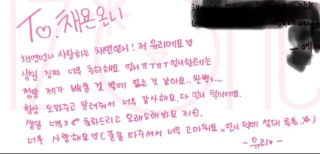 To. 채욘온니
채연언니 사랑하는 채연언니! 저 유리에요♡
생일 진짜 너무 축하해요 언니ㅠㅠㅠㅠ언니한테는
정말 제가 배울 것 밖에 없는 것 같아요..완벽스....
항상 도와주고 알려줘서 너무 감사해요,다 언니 덕이에요.
생일 너무 축하드리고 오래오래봐요 저희.
너무 사랑해요♡ 꿀물 타주셔서 너무 고마워요,,언니 덕에
-유리♥-